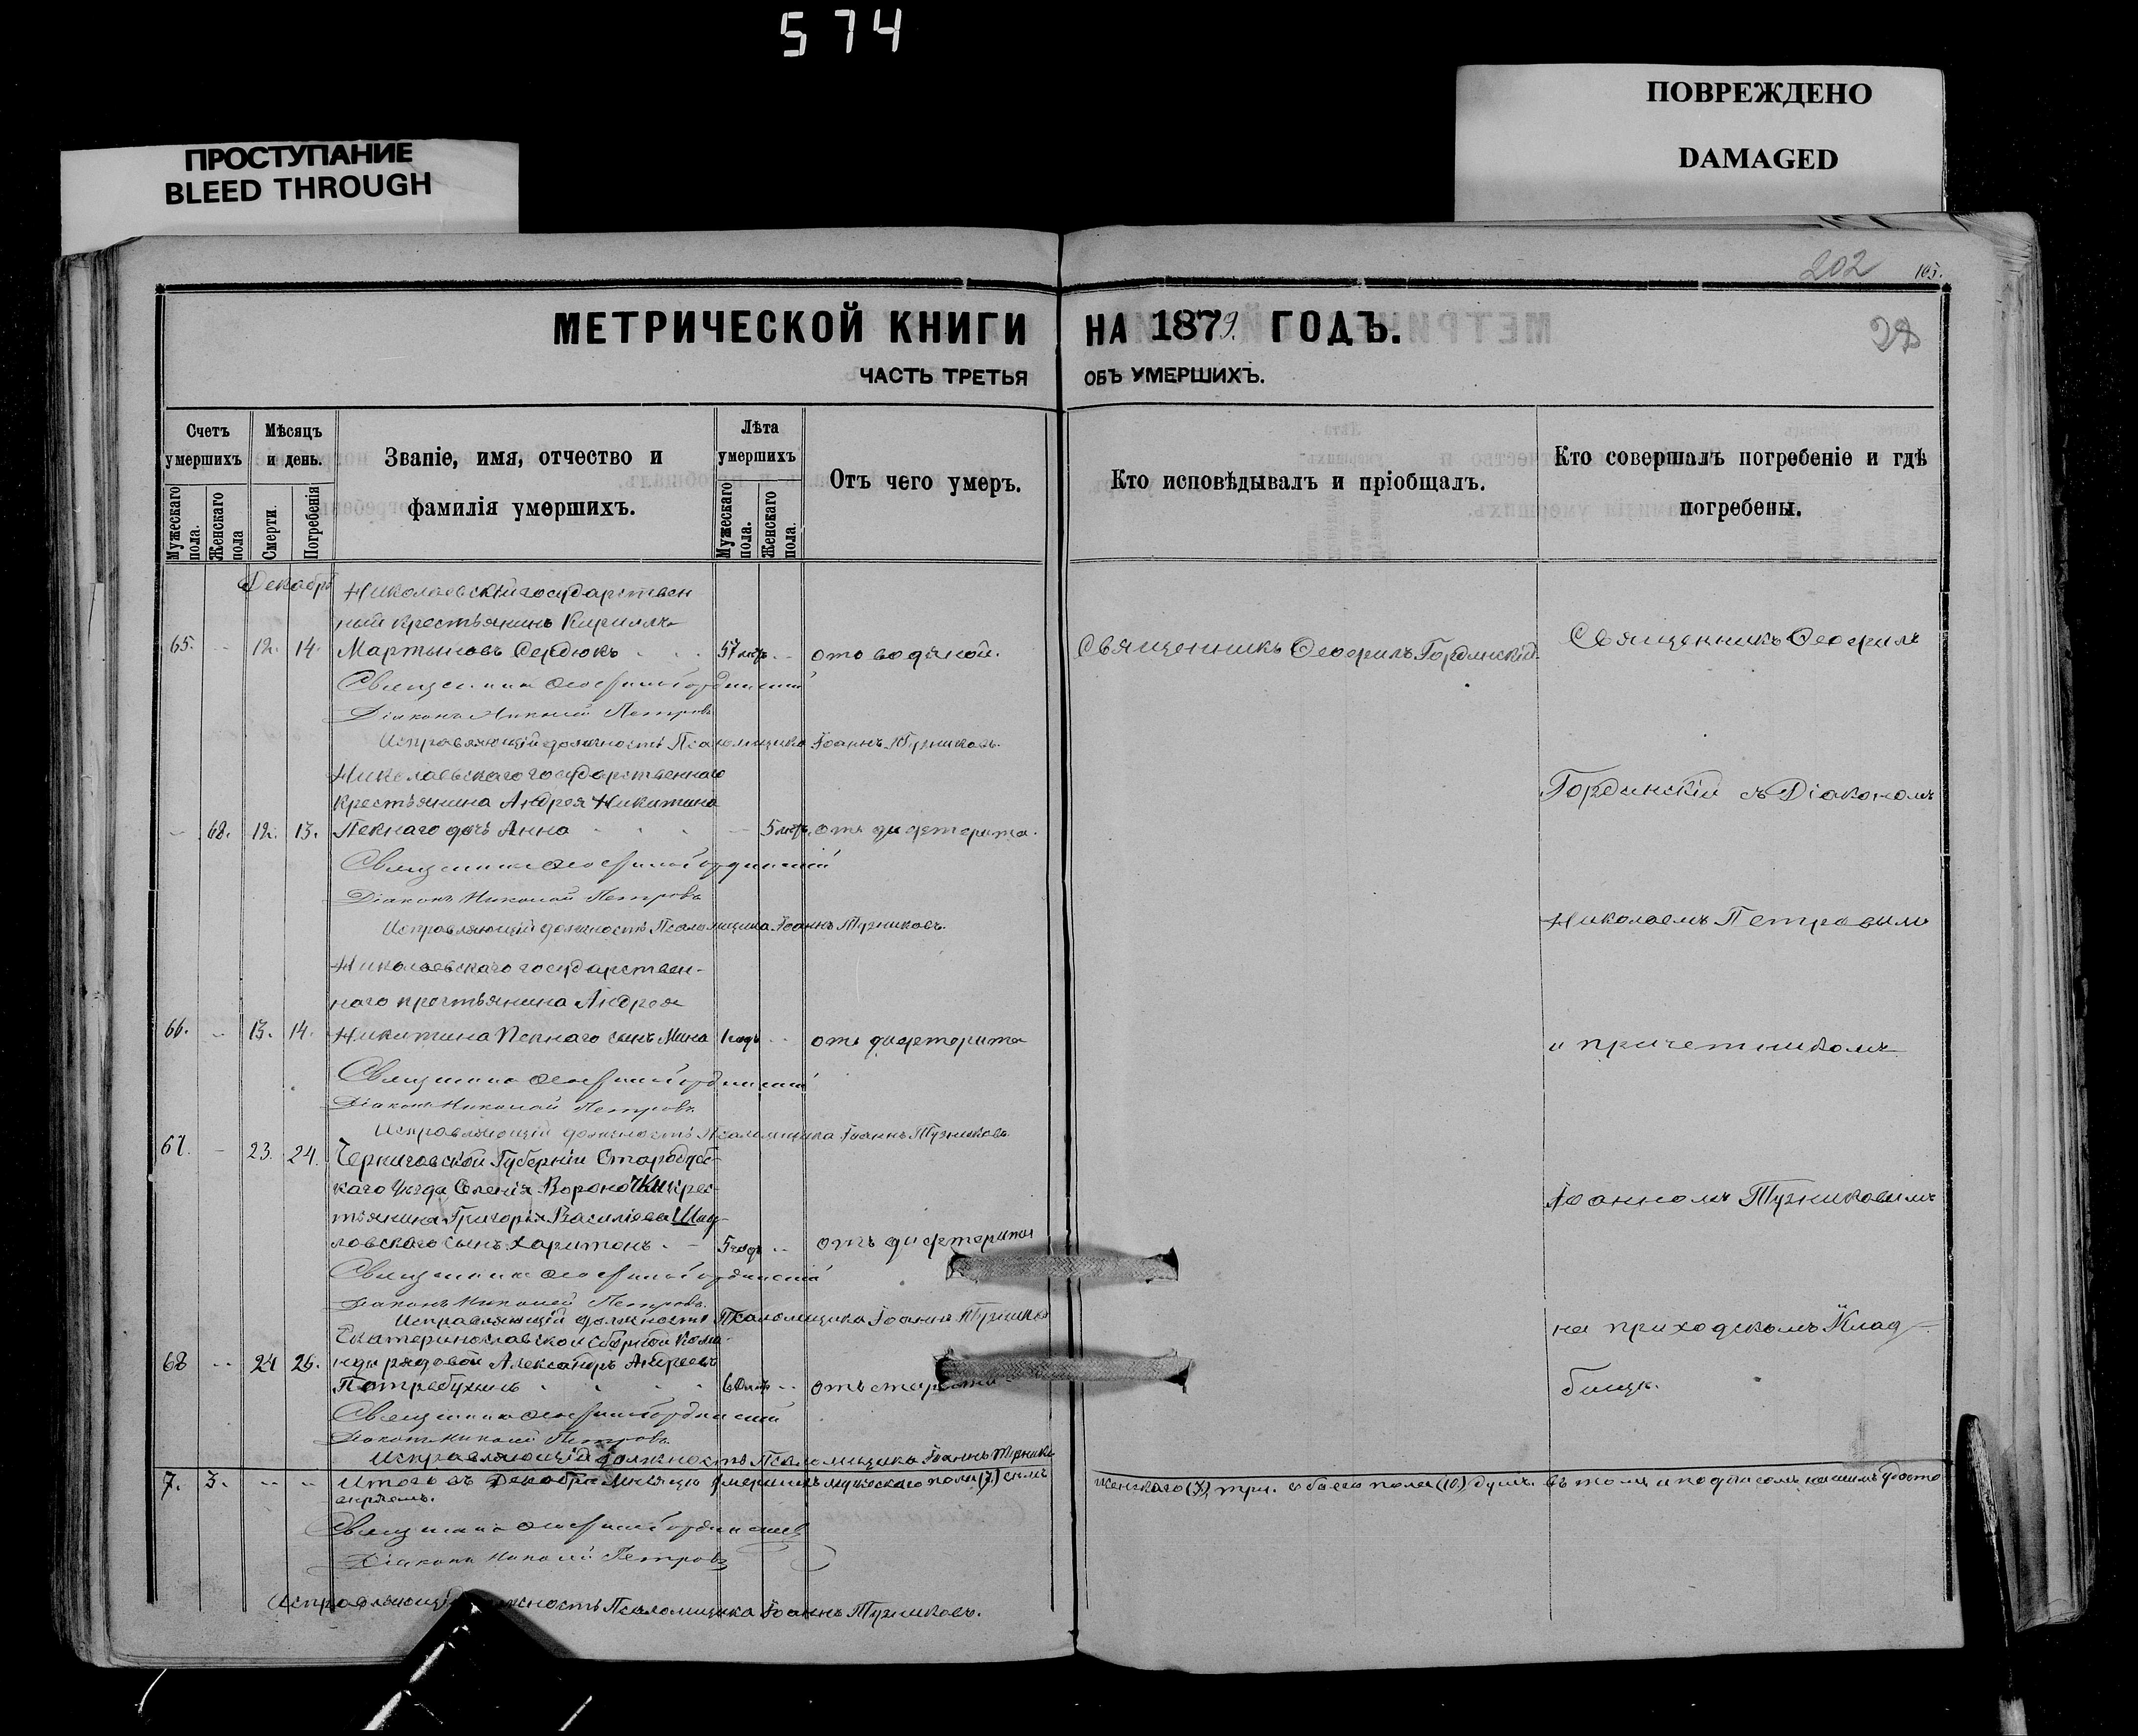 574
ПРОСТУПАНИЕ
BLEED THROUGH
ПОВРЕЖДЕНО
DAMAGED
202
105.
МЕТРИЧЕСКОЙ КНИГИ НА 1879. ГОДЪ.
ЧАСТЬ ТРЕТЬЯ ОБЪ УМЕРШИХЪ.
Счетъ умершихъ
Мужескаго пола.
Женскаго пола
Мѣсяцъ и день.
Смерти.
Погребенія
Званіе, имя, отчество и
фамилія умершихъ.
Лѣта умершихъ
Мужескаго пола.
Женскаго пола.
Отъ чего умеръ.
Кто исповѣдывалъ и пріобщалъ.
Кто совершалъ погребеніе и гдѣ
погребены.
Декабрь
Николаевскій государствен
ный крестьянинъ Кириллъ
65. 12. 14. Мартыновъ Сердюкъ 57 лѣтъ отъ водяной. Священникъ Ѳеофилъ Гординскій
Священникъ Ѳеофилъ
Священникъ Ѳеофилъ Гординскій
Діаконъ Николай Петровъ
Исправляющій должность Псаломщика Іоаннъ Тузниковъ.
Николаевскаго государственнаго
крестьянина Андрея Никитина
Гординскій съ Діакономъ
68. 12. 13. Пекнаго дочь Анна 5 лѣтъ отъ дифтерита.
Священникъ Ѳеофилъ Гординскій
Діаконъ Николай Петровъ
Исправляющій должность Псаломщика Іоаннъ Тузниковъ.
Николаемъ Петровымъ
Николаевскаго государствен-
наго крестьянина Андрея
66. 13. 14. Никитина Пекнаго сынъ Мина 1 годъ отъ дифтерита
и причетникомъ
Священникъ Ѳеофилъ Гординскій
Діаконъ Николай Петровъ
Исправляющій должность Псаломщика Іоаннъ Тузниковъ
67. 23. 24. Черниговской Губерніи Стародуб-
каго Уѣзда, Селенія Вороночки крес-
тьянина Григорія Василіева Шад-
Іоанномъ Тузниковымъ
ловскаго сынъ Харитонъ 5 годъ отъ дифтерита
Священникъ Ѳеофилъ Гординскій
Діаконъ Николай Петровъ.
Исправляющій должность Псаломщика Іоаннъ
на приходскомъ Клад-
Екатеринославской сборной кома-
68 24 26. нды рядовой Александръ Андреевъ
60 лѣтъ отъ старости
бищѣ.
Священникъ Ѳеофилъ Гординскій
Діаконъ Николай Петровъ
Исправляющій должность Псаломщика Іоаннъ
7. 3. Итого въ Декабрѣ Мѣсяцѣ умершихъ мужескаго пола (7) семь женскаго (3) три. обоего пола (10) душъ. въ томъ и подписомъ нашимъ удосто
Священникъ Ѳеофилъ Гординскій
Діаконъ Николай Петровъ
Исправляющій должность Псаломщика Іоаннъ Тузниковъ.